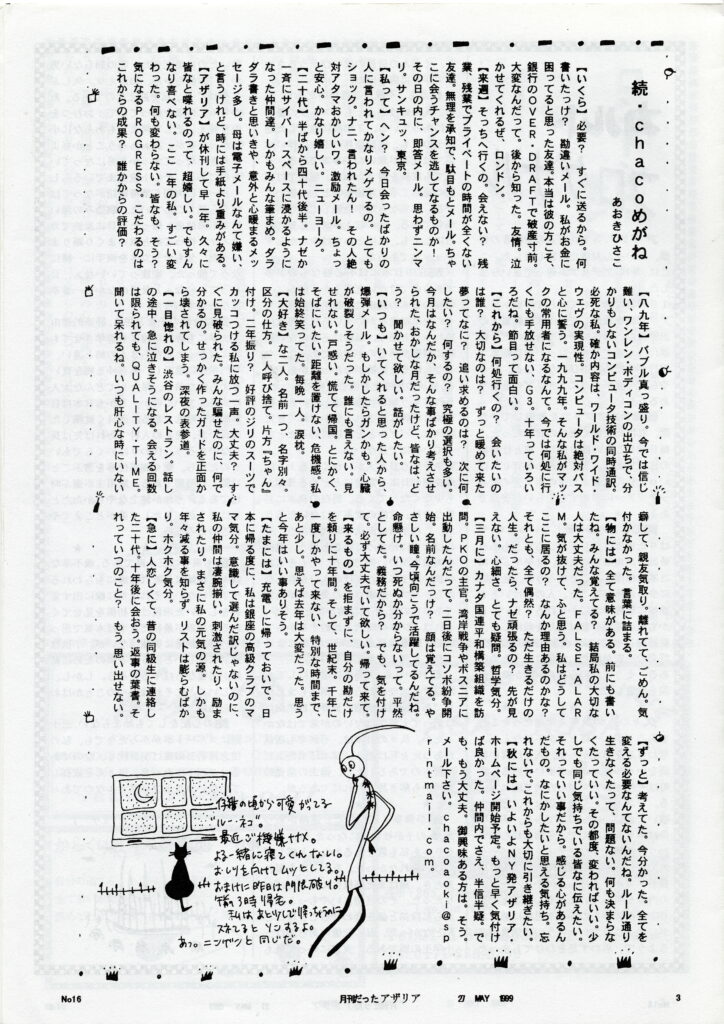 続・chacoめがね
あおきひさこ
【いくら】必要?—すぐに送るから。何
書いたっけ? 勘違いメール。私がお金に
困ってると思った友達。本当は彼の方こそ、
銀行のOVER・DRAFTで破産寸前。
大変なんだって。後から知った。友情。泣
かせてくれるぜ、ロンドン。
【来週】そっちへ行くの。会えない? 残
業、残業でプライベートの時間が全くない
友達。無理を承知で、駄目もとメール。ちゃ
こに会うチャンスを逃してなるものか!
その日の内に、即答メール。思わずニンマ
リ。サンキュッ、東京。
【私って】ヘン? 今日会ったばかりの
人に言われてかなりメゲてるの。とても
ショック。ナニ、言われたん! その人絶
対アタマおかしいワ。激励メール。ちょっ
と安心。かなり嬉しい。ニューヨーク。
【二十代】半ばから四十代後半。ナゼか
一斉にサイバー・スペースに浸かるように
なった仲間達。しかもみんな筆まめ。ダラ
ダラ書きと思いきや、意外と心暖まるメッ
セージ多し。母は電子メールなんて嫌い、
と言うけれど、時には手紙より重みがある。
【アザリア】が休刊して早一年。久々に
皆なと喋れるのって、超嬉しい。でもすん
なり喜べない。ここ一年の私。すごい変
わった。何も変わらない。皆なも、そう?
気になるPROGRESS。こだわるのは
これからの成果? 誰かからの評価?
【八九年】バブル真っ盛り。今では信じ
難い、ワンレン・ボディコンの出立ちで、分
かりもしないコンピュータ技術の同時通訳。
必死な私。確か内容は、ワールド・ワイド・
ウェヴの実現性。コンピュータは絶対パス
と心に誓う。一九九九年。そんな私がマッ
クの常用者になるなんて。今では何処に行
くにも手放せない、G3。十年っていろい
ろだね。節目って面白い。
【これから】何処行くの? 会いたいの
は誰? 大切なのは? ずっと暖めて来た
夢ってなに? 追い求めるのは? 次に何
したい? 何するの? 究極の選択も多い。
今月はなんだか、そんな事ばかり考えさせ
られた、おかしな月だったけど、皆なは、ど
う? 聞かせて欲しい。話がしたい。
【いつも】いてくれると思った人から、
爆弾メール。もしかしたらガンかも。心臓
が破裂しそうだった。誰にも言えない。見
せれない。戸惑い。慌てて帰国。とにかく、
そばにいたい。距離を置けない、危機感。私
は始終笑ってた。毎晩一人、涙枕。
【大好き】な二人。名前一つ、名字別々。
区分の仕方。一人呼び捨て。片方『ちゃん』
付け。二年振り? 好評のジリのスーツで
カッコつける私に放つ一声。大丈夫? す
ぐに見破られた。みんな騙せたのに、何で
分かるの。せっかく作ったガードを正面か
ら壊されてしまう。深夜の表参道。
【一目惚れの】渋谷のレストラン。話し
の途中、急に泣きそうになる。会える回数
は限られても、QUALITY・TIME。
聞いて呆れるね。いつも肝心な時にいない
癖して、親友気取り。離れてて、ごめん。気
付かなかった。言葉に詰まる。
【物には】全て意味がある。前にも書い
たね。みんな覚えてる? 結局私の大切な
人は大丈夫だった。FALSE・ALAR
M。気が抜けて、ふと思う。私はどうして
ここに居るの? なんか理由あるのかな?
それとも、全て偶然? ただ生きるだけの
人生。だったら、ナゼ頑張るの? 先が見
えない。心細さ。とても疑問。哲学気分。
【三月に】カナダ国連平和構築組織を訪
問。PKOの主官。湾岸戦争やボスニアに
出動したんだって。二日後にコソボ紛争開
始。名前なんだっけ? 顔は覚えてる。や
さしい瞳。今頃向こうで活躍してるんだね。
命懸け。いつ死ぬか分からないって。平然
としてた。義務だから? でも、気を付け
て。必ず大丈夫でいて欲しい。帰って来て。
【来るもの】を拒まずに、自分の勘だけ
を頼りに十年間。そして、世紀末。千年に
一度しかやって来ない、特別な時間まで、
あと少し。思えば去年は大変だった。思う
と今年はいい事ありそう。
【たまには】充電しに帰っておいで。日
本に帰る度に、私は銀座の高級クラブのマ
マ気分。意識して選んだ訳じゃないのに、
私の仲間は凄腕揃い。刺激されたり、励ま
されたり。まさに私の元気の源。しかも
年々減る事を知らず、リストは膨らむばか
り。ホクホク気分。
【急に】人恋しくて、昔の同級生に連絡し
た二十代。十年後に会おう。返事の葉書。そ
れっていつのこと? もう、思い出せない。
【ずっと】考えてた。今分かった。全てを
変える必要なんてないんだね。ルール通り
生きなくたって、問題ない。何も決まらな
くたっていい。その都度、変わればいい。少
しでも同じ気持ちでいる皆なに伝えたい。
それっていい事だから。感じる心があるん
だもの。なにかしたいと思える気持ち。忘
れないで。これからも大切に引き継ぎたい。
【秋には】いよいよNY発アザリア・
ホームページ開始予定。もっと早く気付け
ば良かった。仲間内でさえ、半信半疑。で
も、もう大丈夫。御興味ある方は。そう。
メール下さい。chacoaoki@sp
rintmail.com。
仔猫の頃から可愛がってる
"ルー・ネコ"。
最近ご機嫌ナナメ。
よる一緒に寝てくれない。
おしりを向けてムッとしてる。
おまけに昨日は門限破り。
午前3時帰宅。
私はあと少しで帰っちゃうのに
スネてると ソンするよ。
あっ。ニンゲンと同じだ。
No16
月刊だったアザリア
27 MAY 1999
3